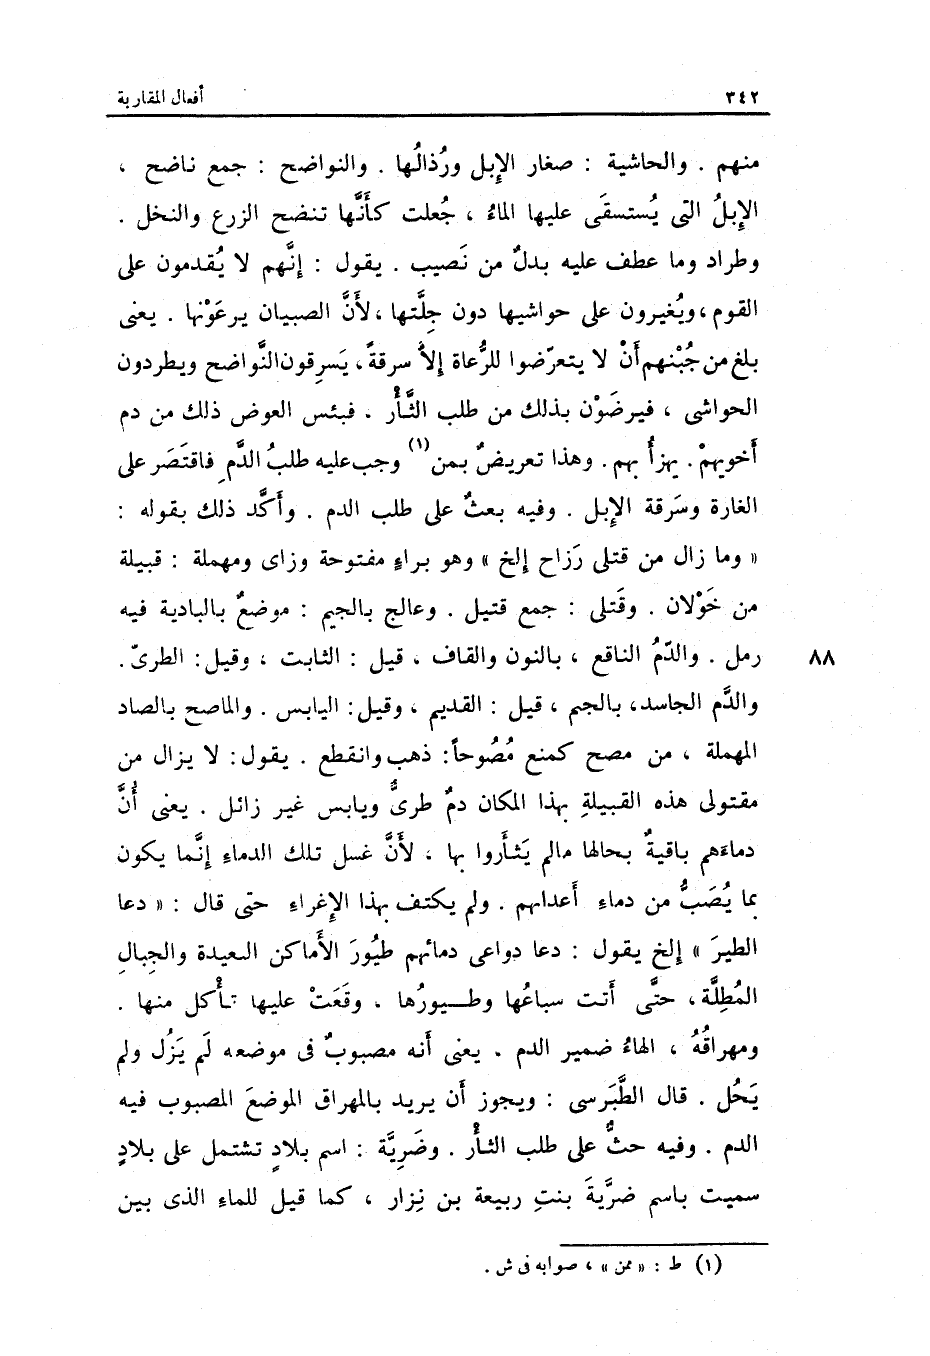 ٣٤٢ أفعال المقاربة
منهم . والحاشية : صغار الإِبل ورُذالُها . والنواضح : جمع ناضح ،
الإِبلُ التى يُستسقَى عليها الماءُ ، جُعلت كأَنَّها تنضح الزرع والنخل .
وطراد وما عطف عليه بدلٌ من نَصيب . يقول : إنَّهم لا يُقدمون على
القوم ، ويُغيرون على حواشيها دون جِلَّتها ، لأَنَّ الصبيان يرعَوْنها . يعنى
بلغ من جُبْنهم أَنْ لا يتعرّضوا للرُّعاة إلاَّ سرقةً ، يَسرِقون النَّواضح ويطردون
الحواشى ، فيرضَوْن بذلك من طلب الثَّأْر . فبئس العوض ذلك من دم
أَخويهمْ . يهزأُ بهم . وهذا تعريضٌ بمن (١) وجب عليه طلبُ الدَّم فاقتَصَر على
الغارة وسَرقة الإِبل . وفيه بعثٌ على طلب الدم . وأَكَّد ذلك بقوله :
« وما زال من قتلى رَزاح إلخ » وهو براءٍ مفتوحة وزاى ومهملة : قبيلة
من خَوْلان . وقَتلى : جمع قتيل . وعالج بالجيم : موضعٌ بالبادية فيه
رمل . والدّمُ الناقع ، بالنون والقاف ، قيل : الثابت ، وقيل : الطرىّ . ٨٨
والدَّم الجاسد ، بالجيم ، قيل : القديم ، وقيل : اليابس . والماصح بالصاد
المهملة ، من مصح كمنع مُصُوحاً : ذهب وانقطع . يقول : لا يزال من
مقتولى هذه القبيلةِ بهذا المكان دمٌ طرىٌّ ويابس غير زائل . يعنى أَنَّ
دماءَهم باقيةٌ بحالها مالم يَثأَروا بها ، لأَنَّ غسل تلك الدماءِ إنَّما يكون
بما يُصَبُّ من دماءِ أعدائهم . ولم يكتف بهذا الإِغراءِ حتى قال : « دعا
الطيرَ » إلخ يقول : دعا دواعى دمائهم طيُورَ الأَماكن البعيدة والجِبالِ
المُطِلَّة ، حتَّى أَتت سباعُها وطــيورُها ، وقَعَتْ عليها تأْكل منها .
ومهراقُهُ ، الهاءُ ضمير الدم . يعنى أنه مصبوبٌ فى موضعه لَم يَزُل ولم
يَحُل . قال الطَّبَرسى : ويجوز أن يريد بالمهراق الموضعَ المصبوب فيه
الدم . وفيه حثٌّ على طلب الثأْر . وضَرِيَّة : اسم بلادٍ تشتمل على بلادٍ
سميت باسم ضرَّيةَ بنتِ ربيعة بن نِزار ، كما قيل للماءِ الذى بين
(١) ط : « ممن » ، صوابه فى ش .